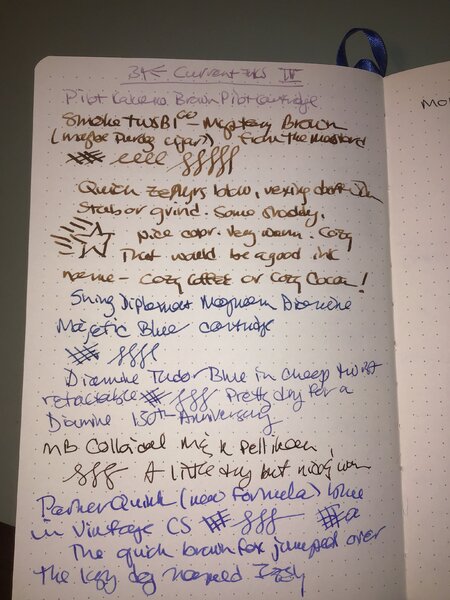 Current Inks IV
Pilot Kakuno Brown Pilot cartridge
Smoke TWSBI Eco - Mystery Brown
(maybe
from the mustard
Quick zephyrs blow, vexing daft Jim
Stub or grind. Some shading.
nice color. Very warm. Cozy
That would be a good ink
name - Cozy Coffee or Cozy Cocoa!
Diplomat Magnum Diamine
Majestic Blue cartridge
Diamine Tudor Blue in cheap
retractable Pretty dry for a
Diamine 150th Anniversary
MB Colloidal
A little dry but nicely
Parker Quink (new formula) blue
in Vintage CS
The quick brown fox jumped over
the lazy dog named Izzy
MO